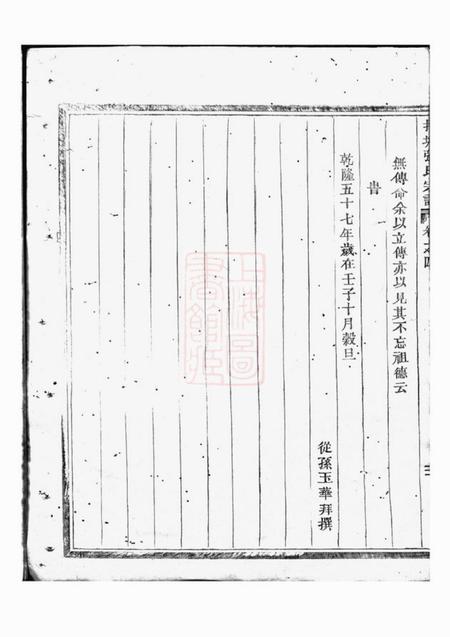 張氏宗譜 卷之四
無傳命余以立傳亦以見其不忘祖德云
旹
乾隆五十七年歲在壬子十月穀旦
從孫玉華拜撰
上海圖書館藏